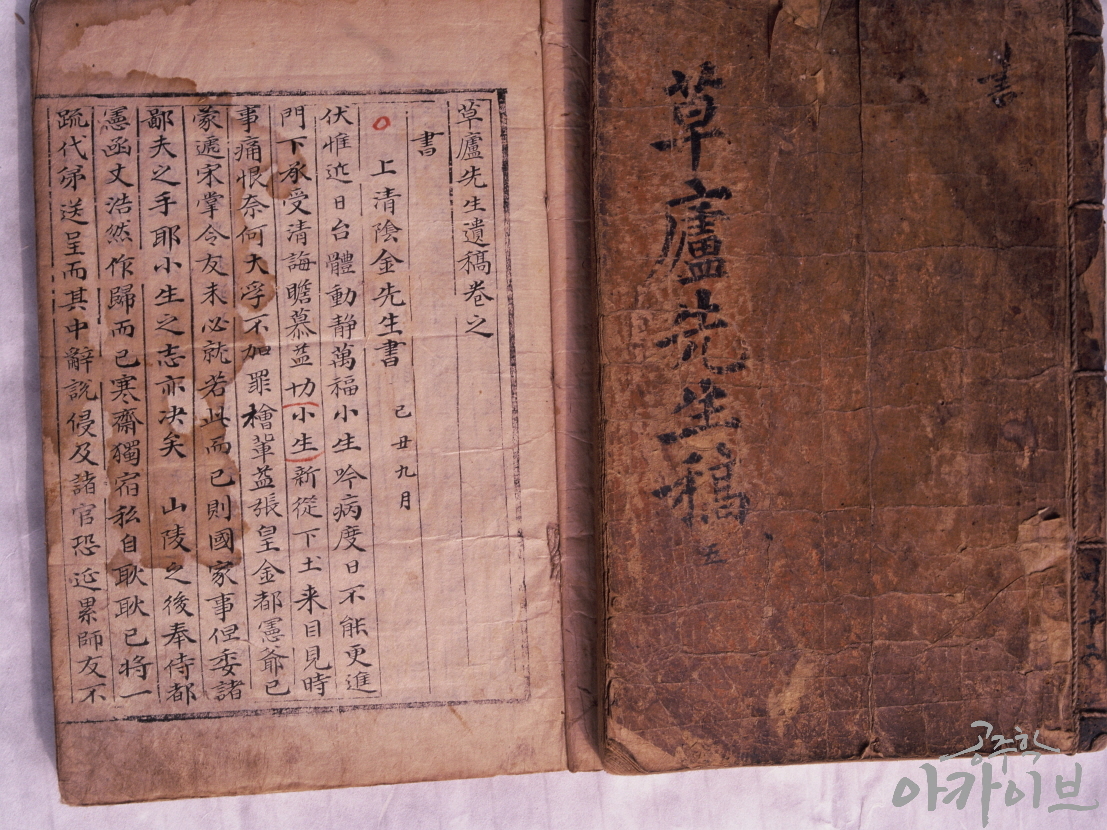 書
草廬先生稿 五
草廬先生遺稿卷之
書
上清陰金先生書 己丑九月
伏惟近日台體動静萬福小生吟病度日不能更進
門下承受清誨瞻慕益切小生新從下土来目見時
事痛恨奈何大浮不加罪檜輩益張皇金都憲爺已
蒙遞宋掌令友未必就若此而已則國家事但委諸
鄙夫之手耶小生之志亦决矣 山陵之後奉侍都
憲函丈浩然作歸而已寒齋獨宿私自耿耿已将一
䟽代弟送呈而其中辭説侵及諸官恐近累師友不
공주학
아카이브